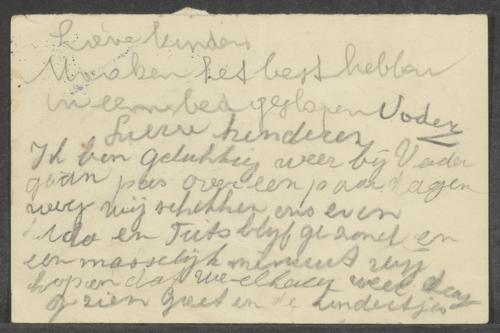 Lieve kinders
Wij maken het best hebben
in een bed geslapen Vader
Lieve kinderen
Ik ben gelukkig weer bij Vader
gaan pas over een paar dagen
weg wij schikken ons even
Ida en Tuts blijf gezond en
een masselijk wij
hopen dat we elkaar weer
zien groet en de kindertjes